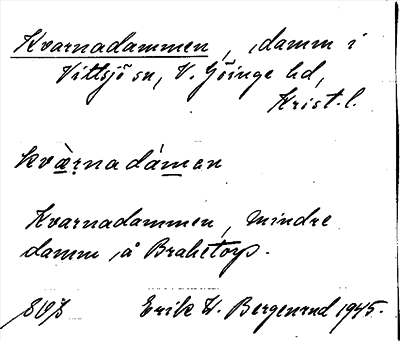 Kvarnadammen, damm i
Vittsjö sn, V. Göinge hd,
Krist. l.
kvæ̀rnadám̲en
Kvarnadammen, mindre
damm å Braketorp.
Erik W. Bergenrud 1945.